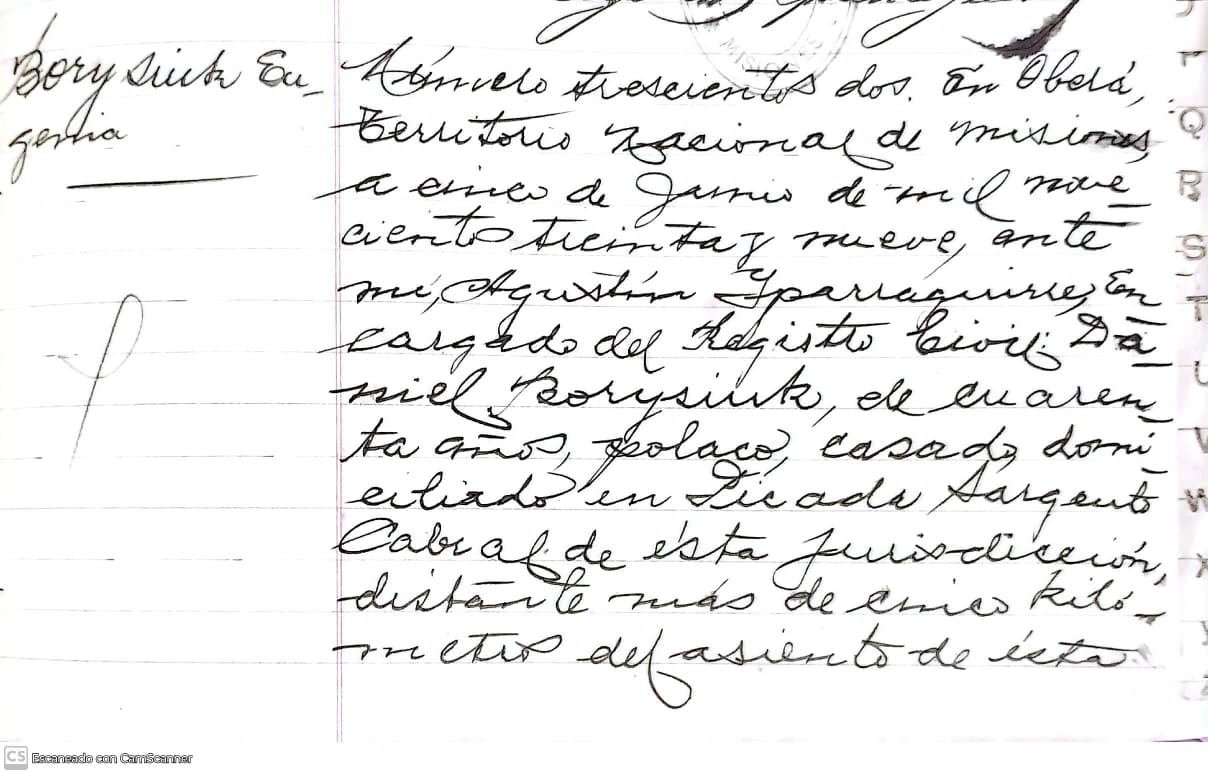 Borysiuk Eu-
genia
MISIONES
Número trescientos dos. En Oberá,
Territorio Nacional de Misiones,
a cinco de Junio de mil nove
cientos treinta y nueve, ante
mi, Agustín Yparraguirre, En
cargado del Registro Civil: Da
niel Borysiuk, de cuaren
ta años, polaco, casado, domi
ciliado en Picada Sargento
Cabral de ésta jurisdicción,
distante más de cinco kiló-
metros del asiento de ésta
P
Q
R
S
T
U
V
W
X
Y
Z
CS Escaneado con CamScanner